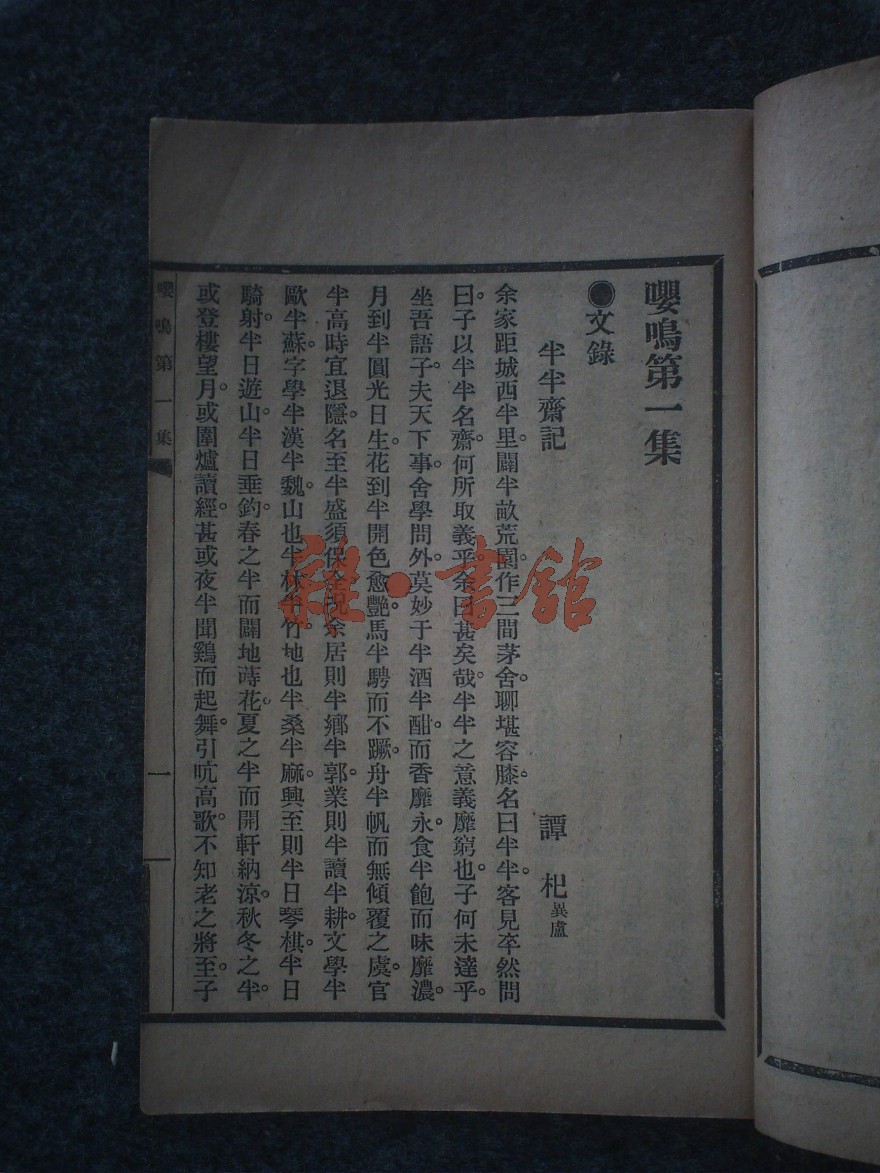 嚶鳴第一集
●文錄
半半齋記
譚杞異盧
余家距城西半里。闢半畝荒園。作三間茅舍。聊堪容膝。名曰半半。客見卒然問
曰。子以半半名齋。何所取義乎。余曰甚矣哉。半半之意義靡窮也。子何未達乎。
坐吾語子。夫天下事。舍學問外。莫妙于半酒半酣。而香靡永。食半飽而味靡濃。
月到半圓光日生。花到半開色愈艷。馬半騁而不蹶。舟半帆而無傾覆之虞。官
半高時宜退隱。名至半盛須保全。況余居則半鄉半郭。業則半讀半耕。文學半
歐半蘇。字學半漢半魏。山也半林半竹。地也半桑半麻。興至則半日琴棋。半日
騎射。半日遊山。半日垂釣。春之半而闢地蒔花。夏之半而開軒納涼。秋冬之半。
或登樓望月。或圍爐讀經。甚或夜半聞鷄而起舞。引吭高歌。不知老之將至。子
嚶鳴第一集
一
雜·書館